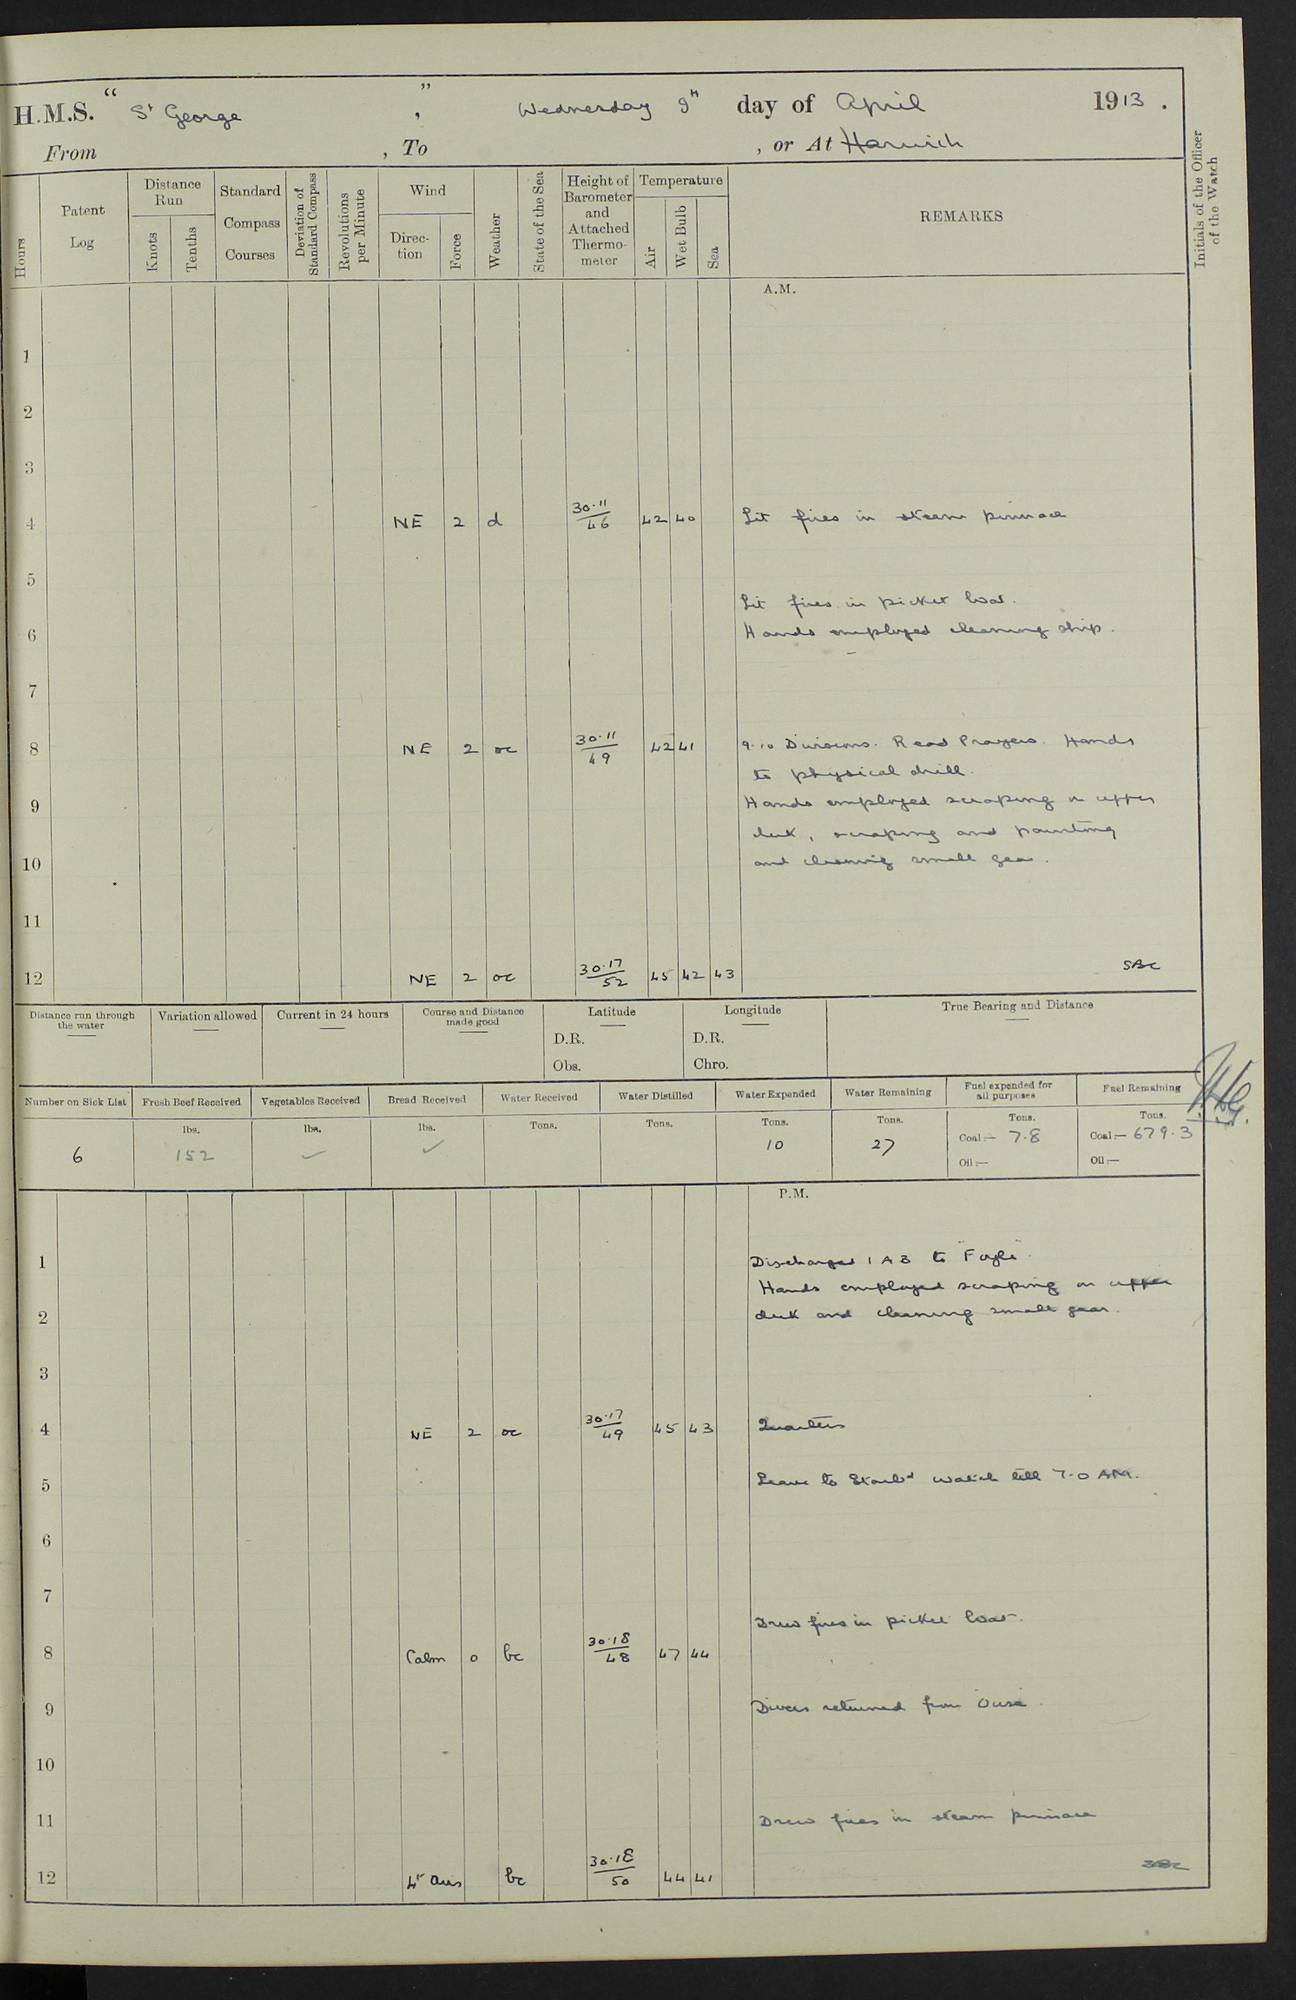 H.M.S. " St George ", Wednesday 9th day of April 1913.
From , To , or At Harwich
Hours
Patent Log
Distance Run
Knots
Tenths
Standard Compass Courses
Deviation of Standard Compass
Revolutions per Minute
Wind
Direction
Force
Weather
State of the Sea
Height of Barometer and Attached Thermometer
Temperature
Air
Wet Bulb
Sea
REMARKS
Initials of the Officer of the Watch
A.M.
1
2
3
4 NE 2 d 30.11/46 42 40 Lit fires in steam pinnace
5
Lit fires in picket boat.
6 Hands employed cleaning ship.
7
8 NE 2 oc 30.11/49 42 41 9.10 Divisions. Read Prayers. Hands
to physical drill.
9 Hands employed scraping on upper
deck, scraping and painting
10 and cleaning small gear.
11
12 NE 2 oc 30.17/52 45 42 43 SBC
Distance run through the water
Variation allowed
Current in 24 hours
Course and Distance made good
Latitude
D.R.
Obs.
Longitude
D.R.
Chro.
True Bearing and Distance
Number on Sick List
6
Fresh Beef Received
lbs.
152
Vegetables Received
lbs.
✓
Bread Received
lbs.
✓
Water Received
Tons.
Water Distilled
Tons.
Water Expended
Tons.
10
Water Remaining
Tons.
27
Fuel expended for all purposes
Tons.
Coal:— 7.8
Oil:—
Fuel Remaining
Tons.
Coal:— 679.3
Oil:—
P.M.
1 Discharged 1 AB to "Foyle".
Hands employed scraping on upper
2 deck and cleaning small gear.
3
4 NE 2 oc 30.17/49 45 43 Quarters
5 Leave to Starbd watch till 7.0 AM.
6
7
Drew fires in picket boat.
8 Calm 0 bc 30.18/48 47 44
9 Divers returned from "Ouse".
10
11 Drew fires in steam pinnace
12 Lt Airs bc 30.18/50 44 41 SBC